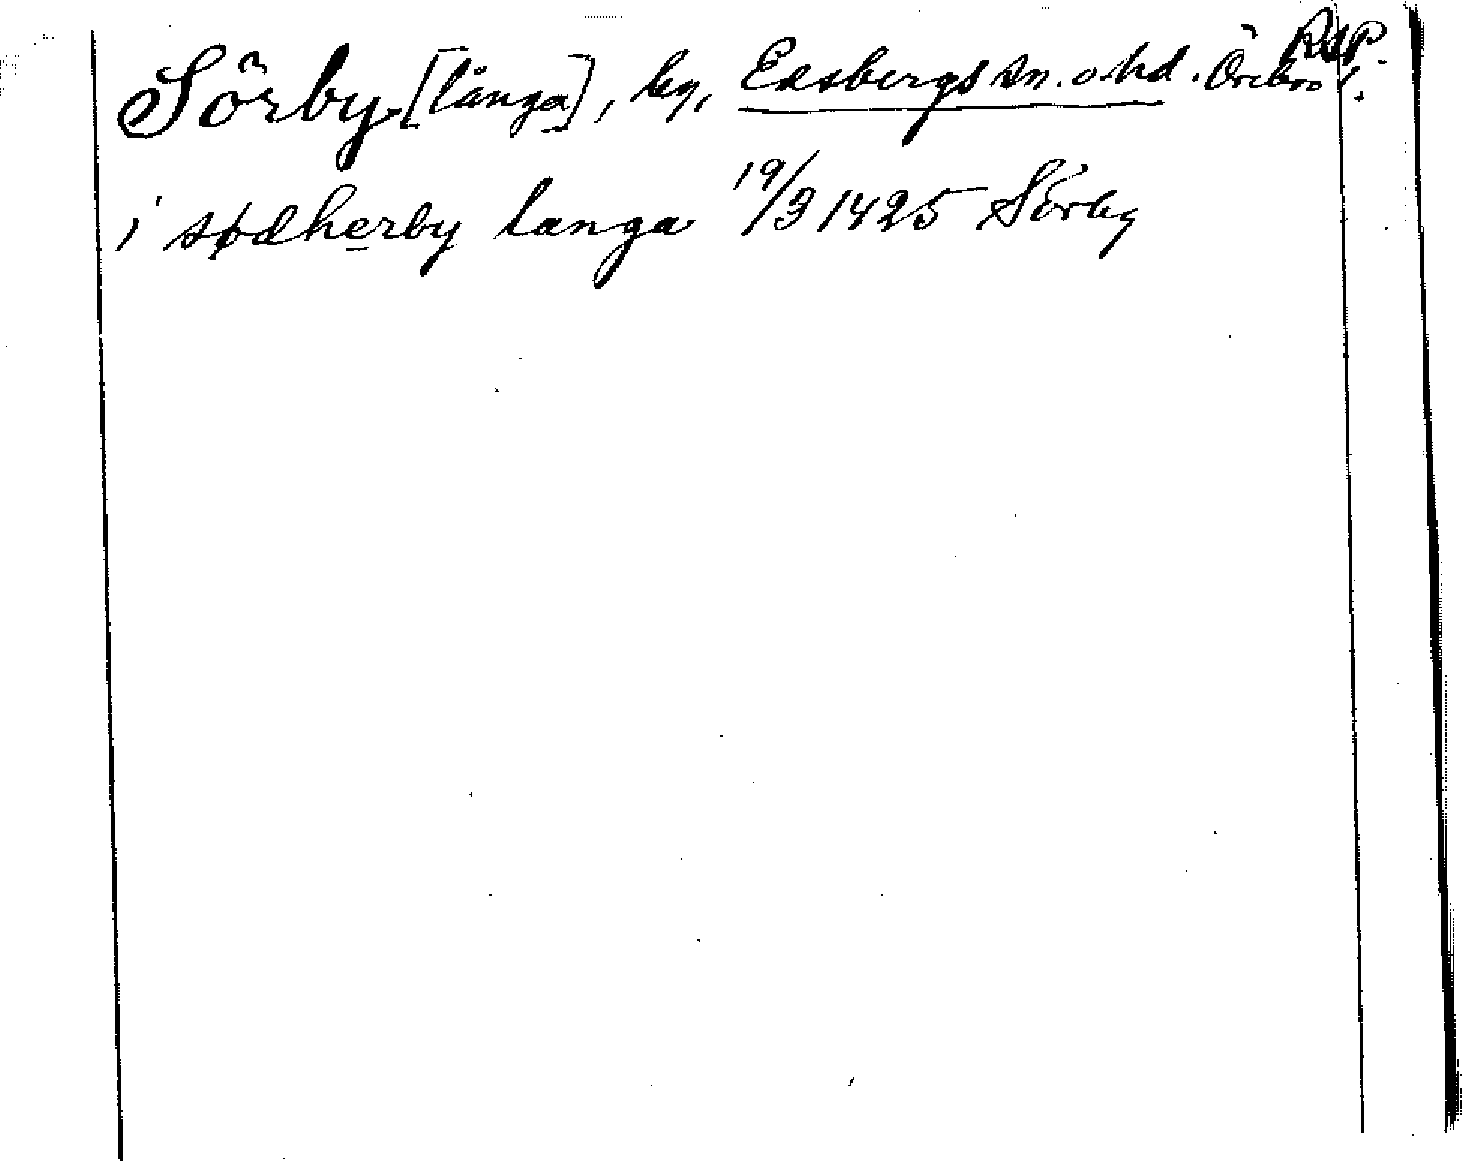 RAP.
Sörby [långa], by, Edsbergs sn. o. hd. Örebro l.
i sødherby langa 19/3 1425 Sörby